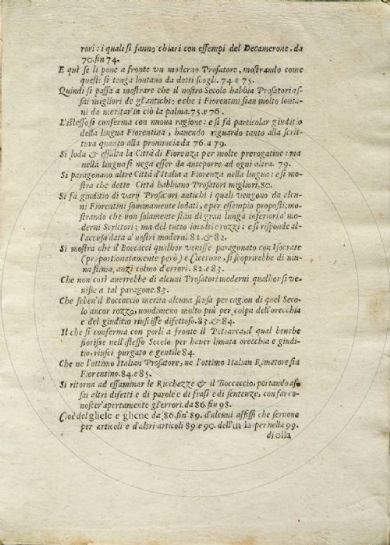 rori: i quali si fanno chiari con essempi del Decamerone. da
70. fin 74.
E quì se li pone a fronte vn moderno Prosatore, mostrando come
questi si tenga lontano da detti scogli. 74. e 75.
Quindi si passa a mostrare che il nostro Secolo habbia Prosatori as-
sai migliori de gl'antichi: e che i Fiorentini sian molto lonta-
ni da meritar in ciò la palma. 75. e 76.
L'istesso si conferma con nuoua ragione: e si fà particolar giuditio
della lingua Fiorentina, hauendo riguardo tanto alla scrit-
tura quanto alla pronuncia da 76. a 79.
Si loda & essalta la Città di Fiorenza per molte prerogatiue: ma
nella lingua si nega esser da anteporre ad ogni altra. 79.
Si paragonano altre Città d'Italia a Fiorenza nella lingua: e si mo-
stra che dette Città habbiano Prosatori migliori. 80.
Si fà giuditio di varij Prosatori antichi i quali vengono da alcu-
ni Fiorentini sommamente lodati, e per essempio proposti; mo-
strando che non solamente sian di gran lunga inferiori a' mo-
derni Scrittori; ma del tutto inculti e rozzi: e si risponde al-
l'accusa data a' nostri moderni. 81. & 82.
Si mostra che il Boccacci qualhor venisse paragonato con Isocrate
(proportionatamente però) e Cicerone, si scoprirebbe di niu-
na stima, anzi colmo d'errori. 82. e 83.
Che non così auerrebbe di alcuni Prosatori moderni qualhor si ve-
nisse a tal paragone. 83.
Che seben'il Boccaccio merita alcuna scusa per cagion di quel Seco-
lo ancor rozzo, nondimeno molto più per colpa dell'orecchia
e del giuditio riuscisse difettoso. 83. & 84.
Il che si conferma con porli a fronte il Petrarca, il qual benche
fiorisse nell'istesso Secolo, per hauer limata orecchia e giudi-
tio, riuscì purgato e gentile 84.
Che ne l'ottimo Italian Prosatore, ne l'ottimo Italian Rimatore sia
Fiorentino. 84. e 85.
Si ritorna ad essaminar le Ricchezze & il Boccaccio, portando as-
sai altri difetti e di parole e di frasi e di sentenze, con far co-
noscer'apertamente gl'errori. da 86. fin 98.
Cioè del ghele e ghene da 86. fin' 89. d'alcuni affissi che seruono
per articoli e d'altri articoli 89 e 90. dell'in la per nella 99.
di olla